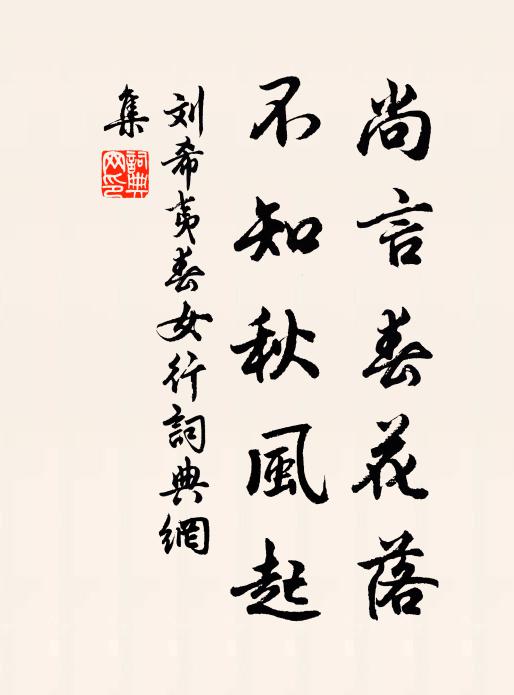 尚言春花落
不知秋風起
刘希夷春女行詞典網
集
詞典网印